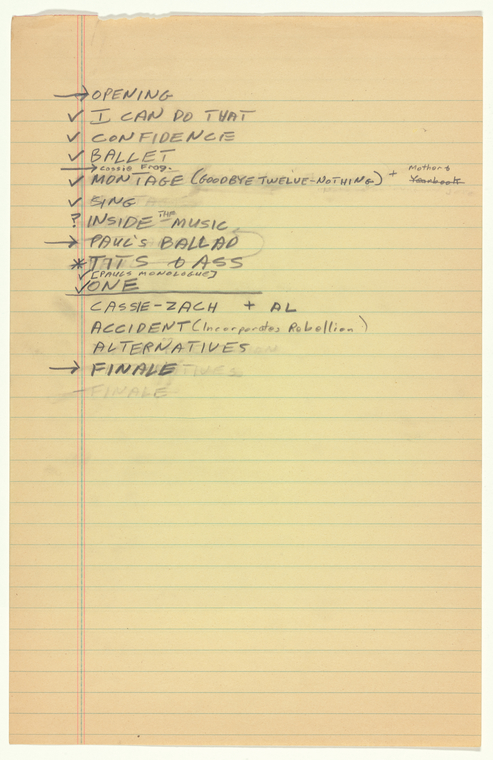 → OPENING
✓ I CAN DO THAT
✓ CONFIDENCE
✓ BALLET
→ Cassie Frag.
✓ MONTAGE (GOODBYE TWELVE-NOTHING) + Mothers Yearbook
✓ SING
? INSIDE THE MUSIC
→ PAUL'S BALLAD
* TITS & ASS
[PAULS MONOLOGUE]
✓ ONE
CASSIE-ZACH + AL
ACCIDENT (Incorporates Rebellion)
ALTERNATIVES
→ FINALE
FINALE